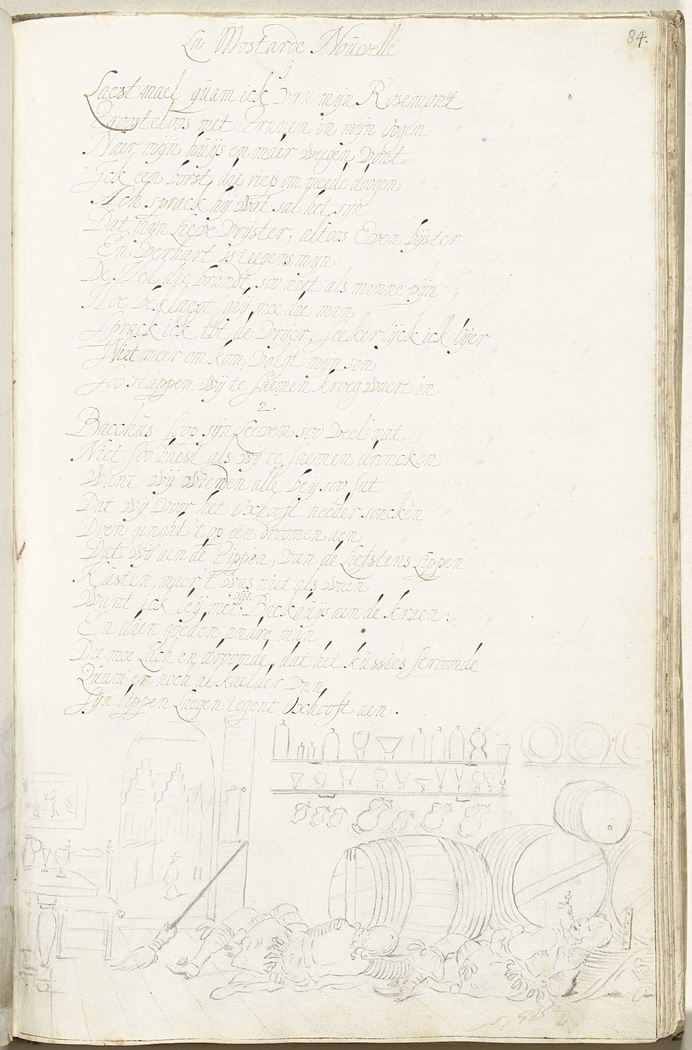 La Mostarde Nouvelle
84.
Laest mael quam ick van mijn Rosemontt
Troosteloos met tranen in mijn oogen
Naer mijn huijs en onder weegen vont
Ick een vorst, die riep om meede
Ach sprack hij wat sal het sijn
Dat mijn Lieve vrijster, altoos Even bijster
En verhart is teegens mijn
De Hel die brandt, soo niet als minne pijn
Hoe beklaegt ghij mee die min
Sprack ick tot de vrijer, seekerlijck ick lijer
Niet meer om kom, volgt mijn sin
Soo stappen wij te saemen kroegwaert in
2.
Bacchus soop sijn Leeven soo veel nat
Niet soo haest als wij te saemen droncken
Want wij wierden alle beij soo sat
Dat wij voor het Ochooft needer soncken
Doen ginght 't op een droomen aen
Dat wij aen de Lippen, van de Liefstens Lippen
Kusten, maer t was niet als waen
Want ick leij met mijn Backhuijs aen de kraen:
En dien goeden andre mijn
Die mee Lach en droomde, dat het kussies stroomde
Quam er noch al
Sijn lippen Laegen tegent Ochooft aen.